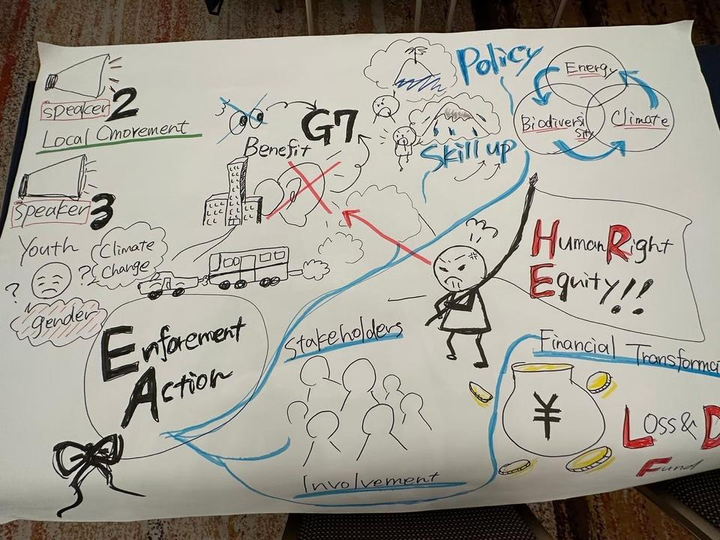 speaker 2
Local Cmorement
speaker 3
Youth
? ?
Climate
Change
?
gender
Benefit
G7
Policy
Skill up
Energy
Biodiversi
sity
Climate
Human Right
Equity!!
Enforement
Action
Stakeholders
Involvement
Financial Transforma
¥
Loss & D
Fund